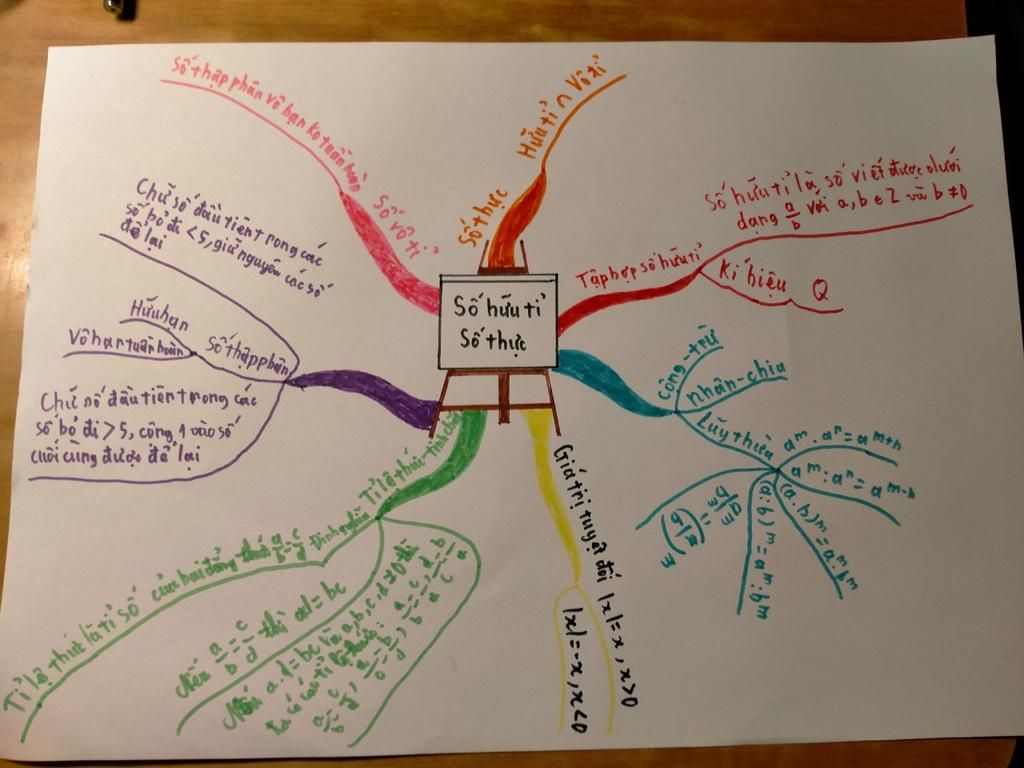 Số hữu tỉ
Số thực
Số thập phân vô hạn ko tuần hoàn
Số vô tỉ
Số thực
Hữu tỉ ∩ Vô tỉ
Tập hợp số hữu tỉ
Số hữu tỉ là số viết được dưới
dạng a/b với a, b ∈ Z và b ≠ 0
Kí hiệu Q
Cộng - trừ
nhân - chia
Lũy thừa
a^m . a^n = a^m+n
a^m : a^n = a^m-n
(a.b)^m = a^m.b^m
(a:b)^m = a^m:b^m
(a/b)^m = a^m/b^m
Giá trị tuyệt đối |x| = x, x>0
|x| = -x, x<0
Tỉ lệ thức - tính chất
Định nghĩa
Tỉ lệ thức là tỉ số của hai đẳng thức a/b = c/d
Nếu a/b = c/d thì ad = bc
Nếu a.d = bc và a, b, c, d ≠ 0 thì
ta có các tỉ lệ thức:
Số thập phân
Chữ số đầu tiên trong các
số bỏ đi < 5, giữ nguyên các số
để lại
Hữu hạn
Vô hạn tuần hoàn
Chữ số đầu tiên trong các
số bỏ đi > 5, cộng 1 vào số
cuối cùng được để lại